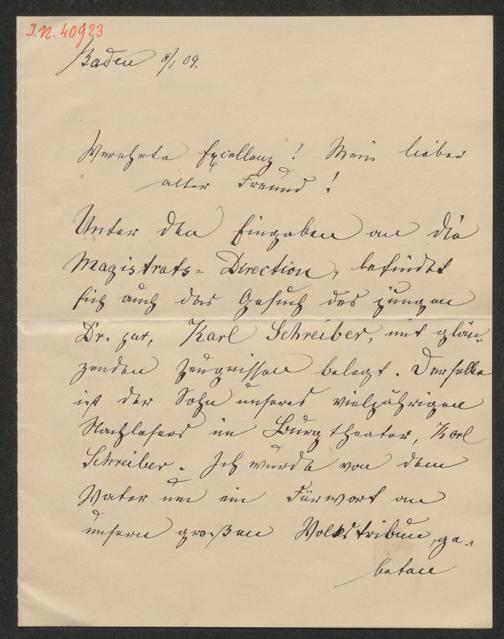 J.N. 40923
Baden 8/1 09.
Verehrte Excellenz! Mein lieber
alter Freund!
Unter den Eingaben an die
Magistrats-Direction, befindet
sich auch das Gesuch des jungen
Dr. jur, Karl Schreiber, mit glän-
zenden Zeugnissen belegt. Derselbe
ist der Sohn unseres vieljährigen
Nachlesers im Burgtheater, Karl
Schreiber. Ich wurde von dem
Vater um ein Fürwort an
unsern großen Volkstribun, ge-
beten